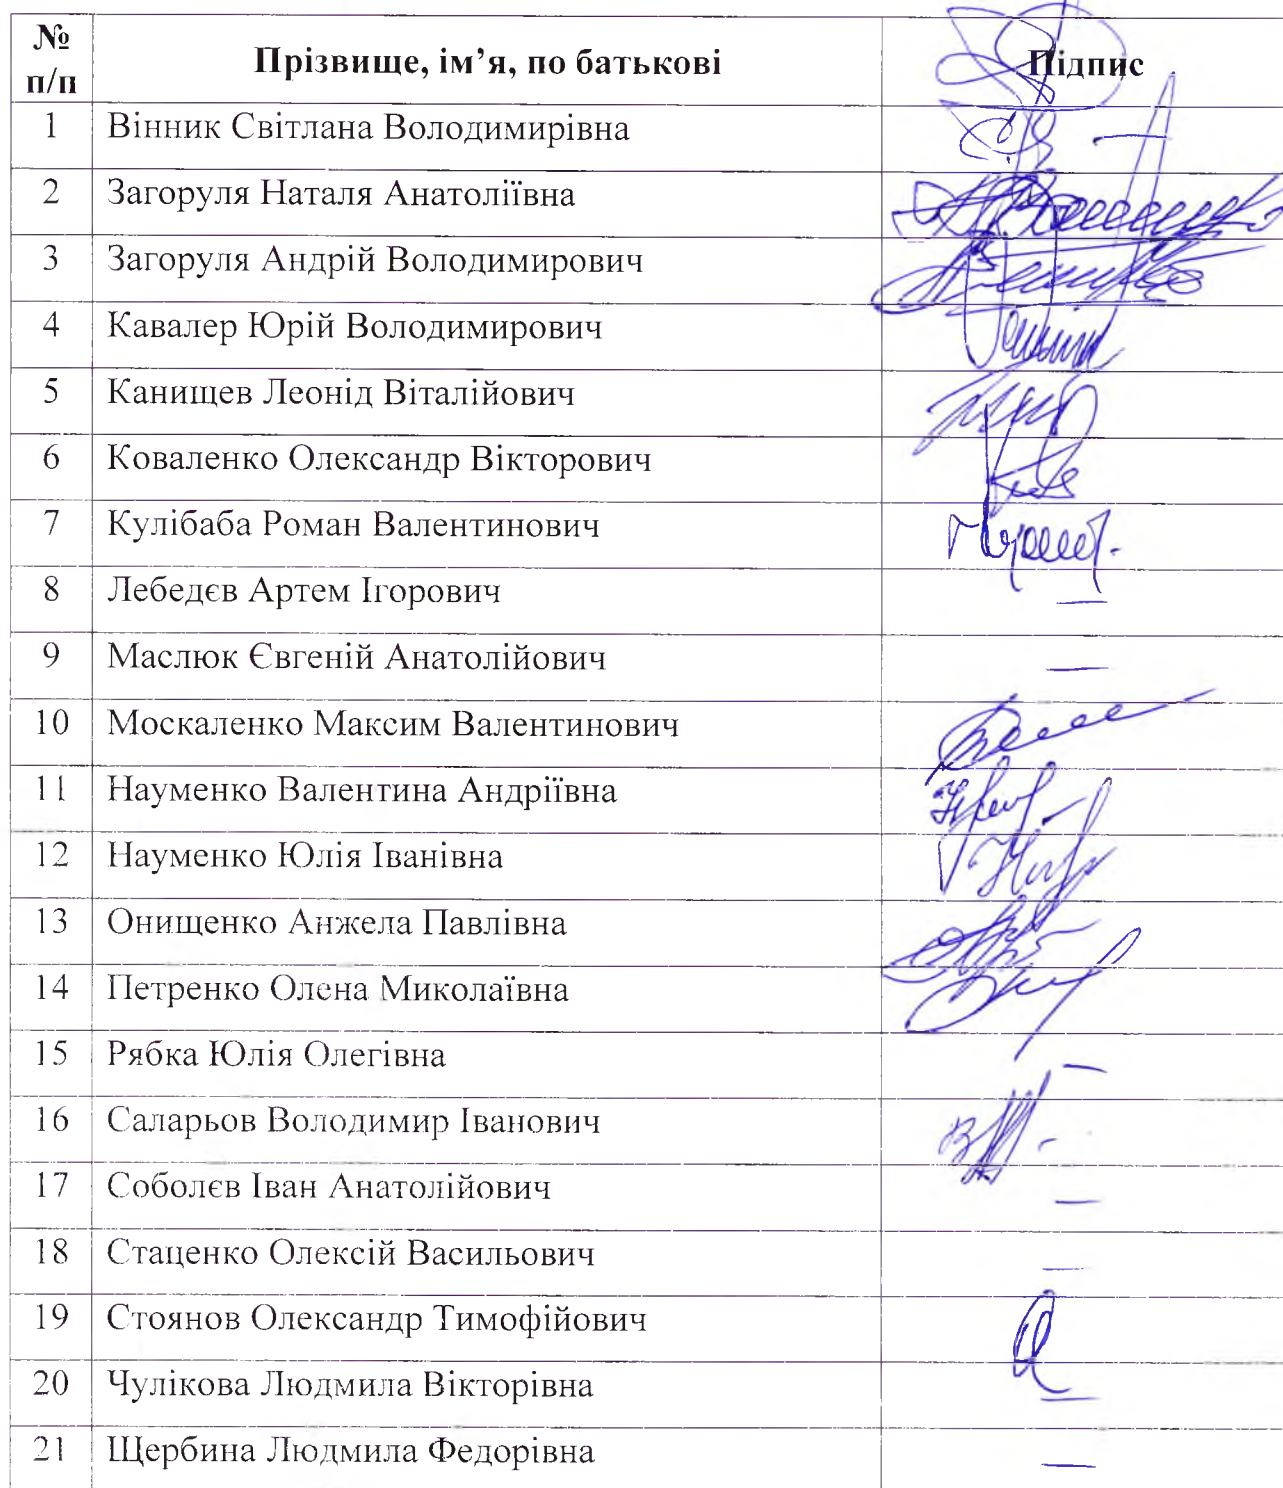 № п/п Прізвище, ім’я, по батькові Підпис
1 Вінник Світлана Володимирівна
2 Загоруля Наталя Анатоліївна
3 Загоруля Андрій Володимирович
4 Кавалер Юрій Володимирович
5 Канищев Леонід Віталійович
6 Коваленко Олександр Вікторович
7 Кулібаба Роман Валентинович
8 Лебедєв Артем Ігорович —
9 Маслюк Євгеній Анатолійович —
10 Москаленко Максим Валентинович
11 Науменко Валентина Андріївна
12 Науменко Юлія Іванівна
13 Онищенко Анжела Павлівна
14 Петренко Олена Миколаївна
15 Рябка Юлія Олегівна —
16 Саларьов Володимир Іванович
17 Соболєв Іван Анатолійович —
18 Стаценко Олексій Васильович —
19 Стоянов Олександр Тимофійович
20 Чулікова Людмила Вікторівна —
21 Щербина Людмила Федорівна —